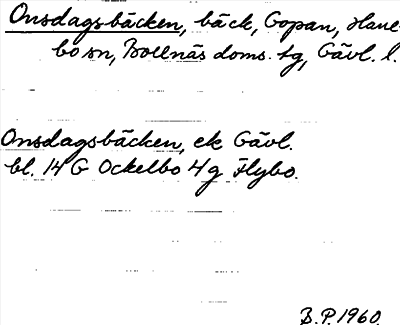 Onsdagsbäcken, bäck, Gopan, Hane-
bo sn, Bollnäs doms. tg, Gävl. l.
Onsdagsbäcken, ek Gävl.
bl. 14 G Ockelbo 4 g Flybo.
B.P. 1960.